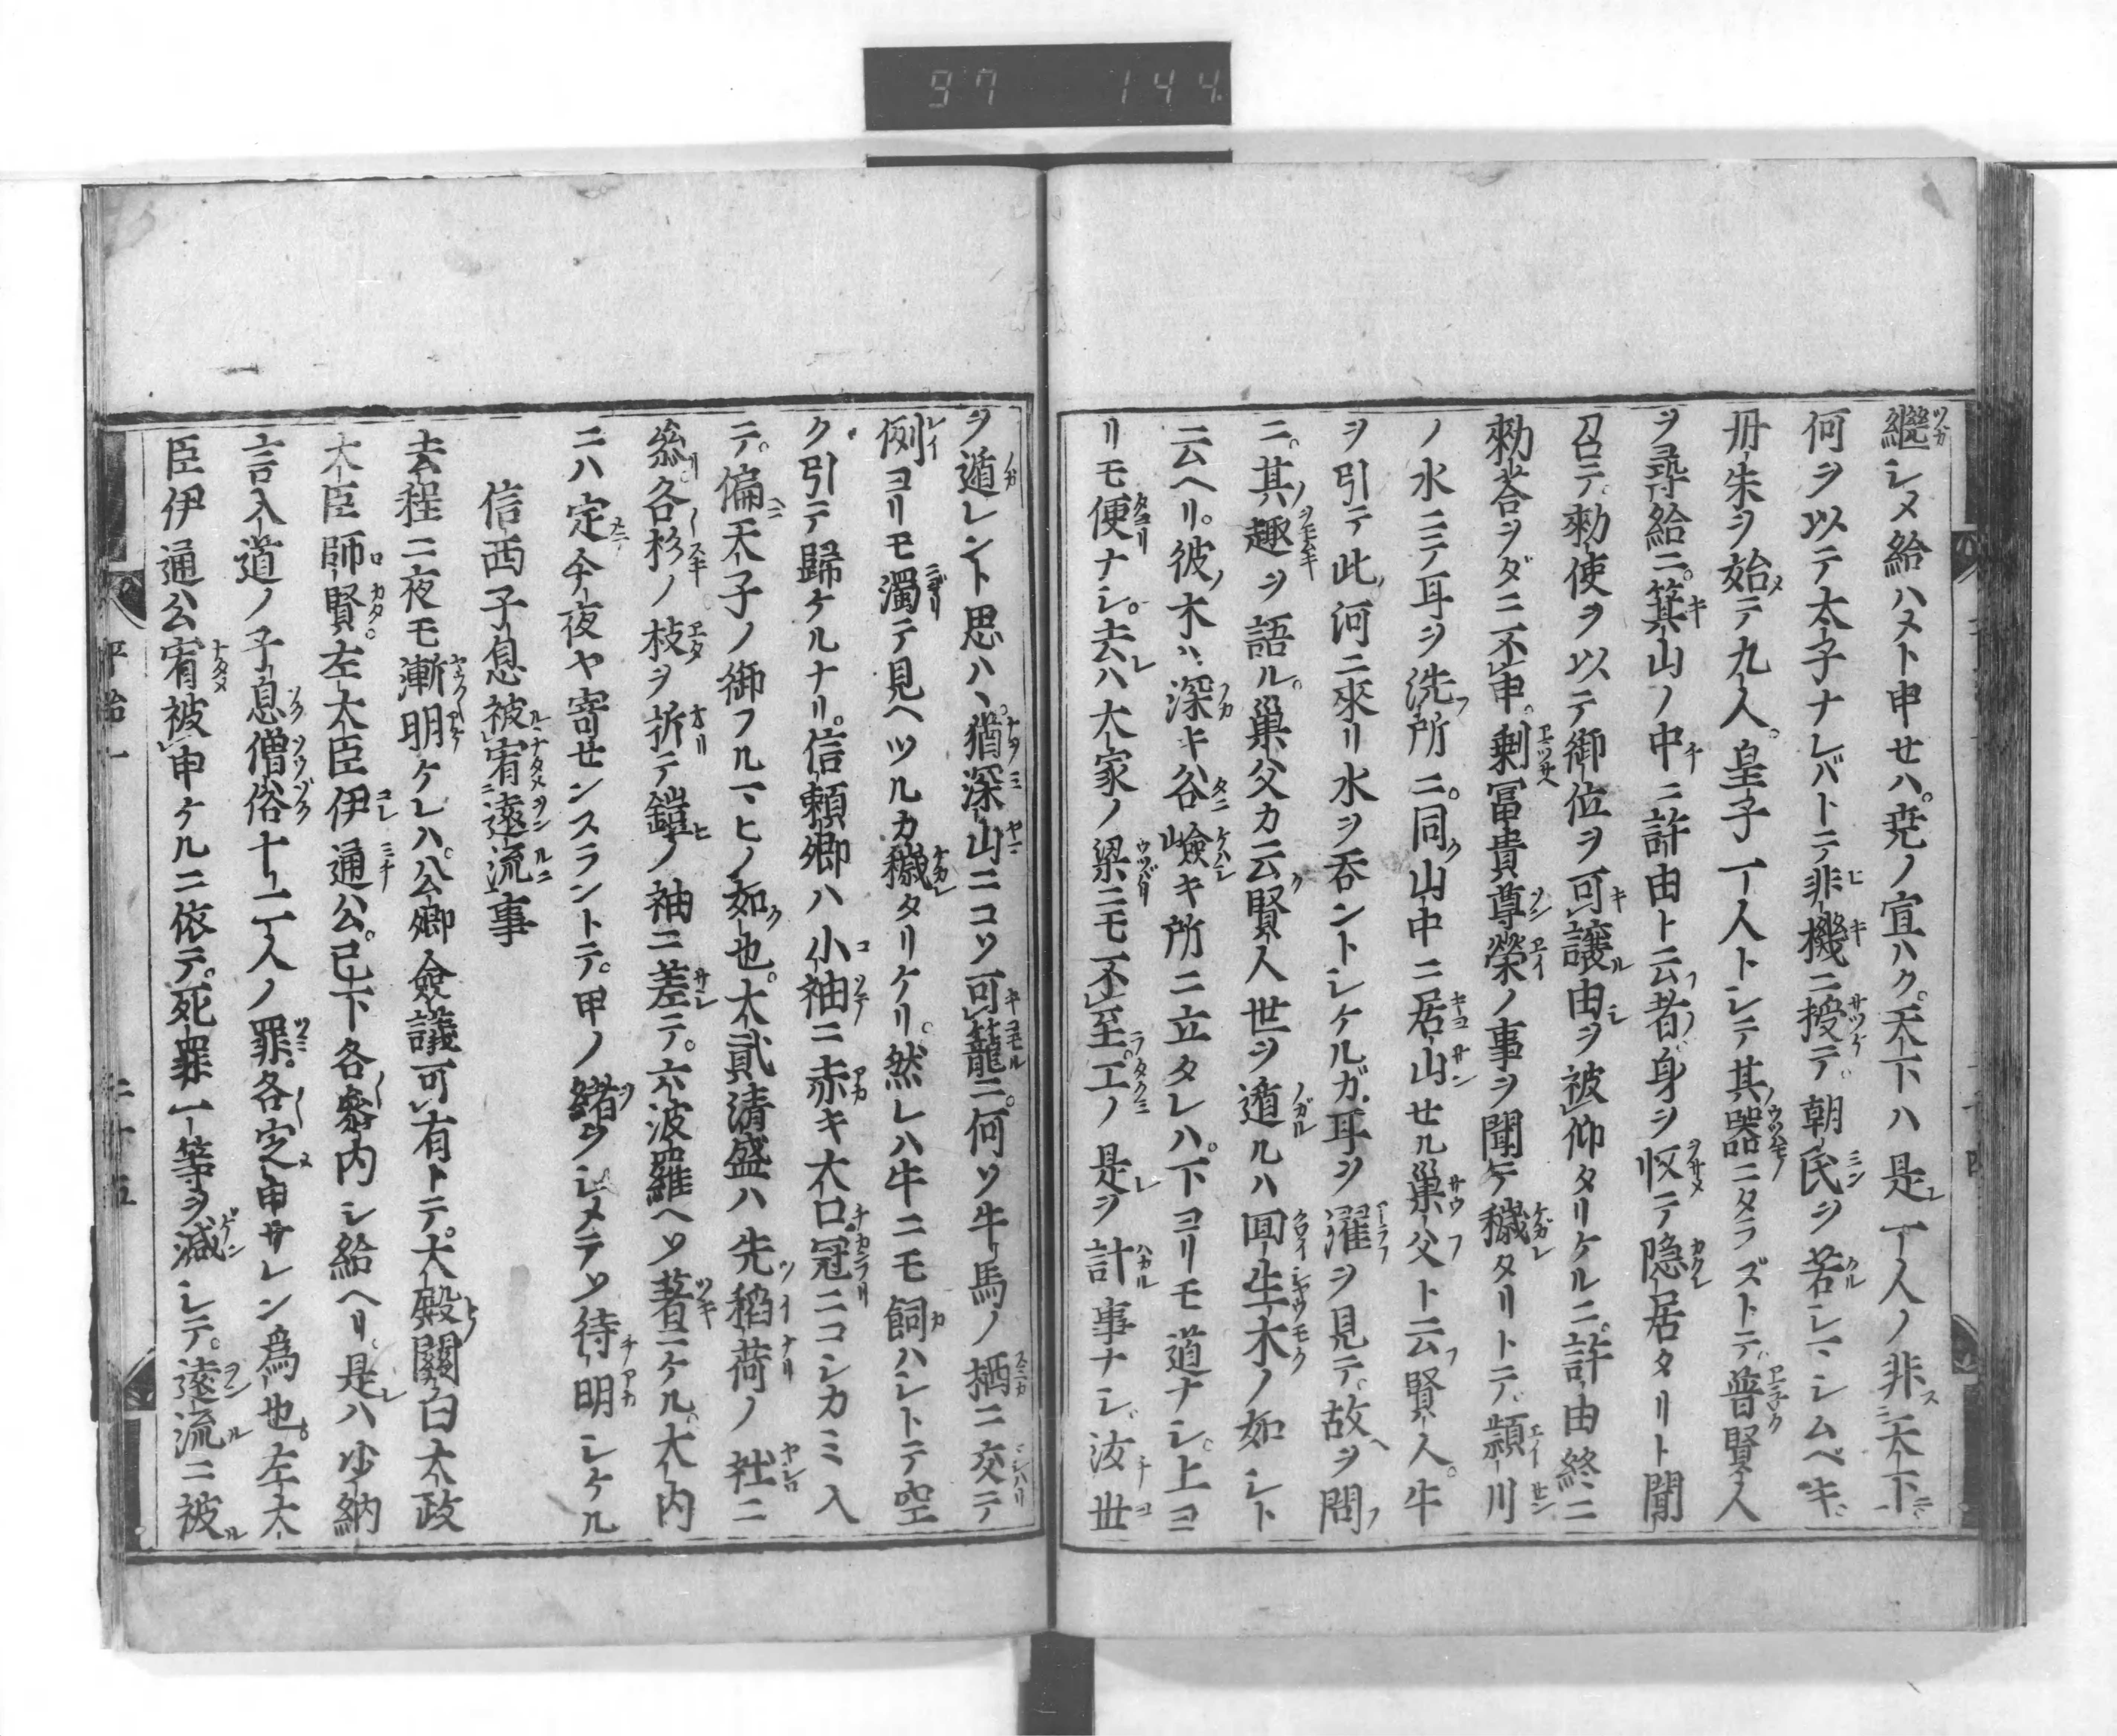 97 144
繼シメ給ハヌト申セハ。堯ノ宣ハク。天下ハ是一人ノ非天下ニ
何ヲ以テ太子ナレバトテ非機ニ授テ。朝民ヲ若シマシムベキ
丹朱ヲ始テ九人。皇子一人トシテ其器ニタラズトテ。普賢人
ヲ尋給ニ。箕山ノ中ニ許由ト云者身ヲ収テ隠居タリト聞
召テ。勅使ヲ以テ御位ヲ可譲由ヲ被仰タリケルニ。許由終ニ
勅答ヲダニ不申。剰冨貴尊榮ノ事ヲ聞テ穢タリトテ。頴川
ノ水ニテ耳ヲ洗所ニ。同山中ニ居山セル巣父ト云賢人。牛
ヲ引テ此河ニ來リ水ヲ呑ントシケルガ。耳ヲ濯ヲ見テ。故ヲ問
ニ。其趣ヲ語ル。巣父カ云賢人世ヲ遁ルハ回生木ノ如シト
云ヘリ。彼木ハ深キ谷嶮キ所ニ立タレハ。下ヨリモ道ナシ。上ヨ
リモ便ナシ。去ハ大家ノ梁ニモ不至。工ノ是ヲ計事ナシ。汝世
ヲ遁レント思ハヽ。猶深山ニコソ可籠ニ。何ソ牛馬ノ栖ニ交テ
例ヨリモ濁テ見ヘツルカ穢タリケリ。然レハ牛ニモ飼ハシトテ空
ク引テ歸ケルナリ。信頼卿ハ小袖ニ赤キ大口。冠ニコシカミ入
テ。偏天子ノ御フルマヒノ如也。大貳清盛ハ先稻荷ノ社ニ
參。各杉ノ枝ヲ折テ鎧ノ袖ニ差テ。六波羅ヘソ著ニケル。大内
ニハ定今夜ヤ寄センスラントテ。甲ノ緒ヲシメテソ待明シケル
信西子息被宥遠流事
去程ニ夜モ漸明ケレハ。公卿僉議可有トテ。大殿關白太政
大臣師賢。左大臣伊通公。已下各參内シ給ヘリ。是ハ少納
言入道ノ子息僧俗十二人ノ罪。各定申サレン爲也。左大
臣伊通公宥被申ケルニ依テ。死罪一等ヲ滅シテ。遠流ニ被
平治一 二十五